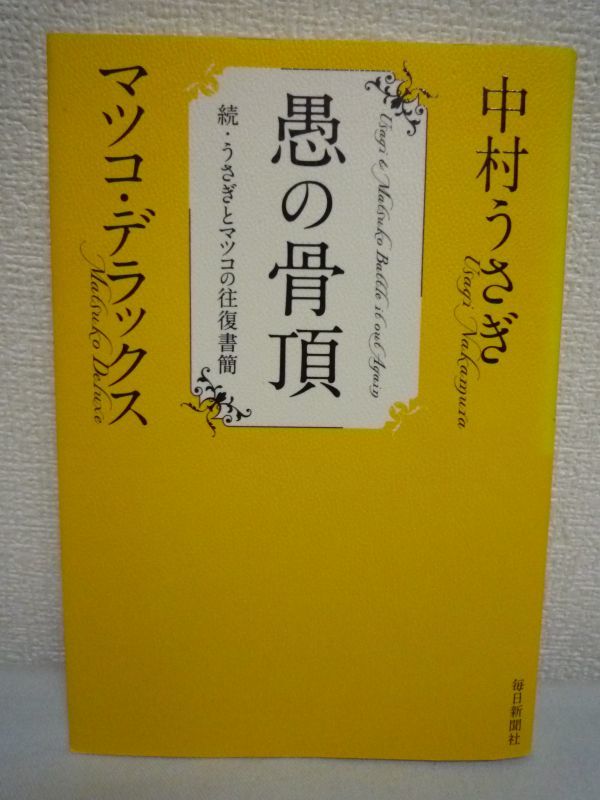 中村うさぎ
Usagi Nakamura
Usagi & Matsuko Battle it out Again
愚の骨頂
続・うさぎとマツコの往復書簡
マツコ・デラックス
Matsuko Deluxe
毎日新聞社